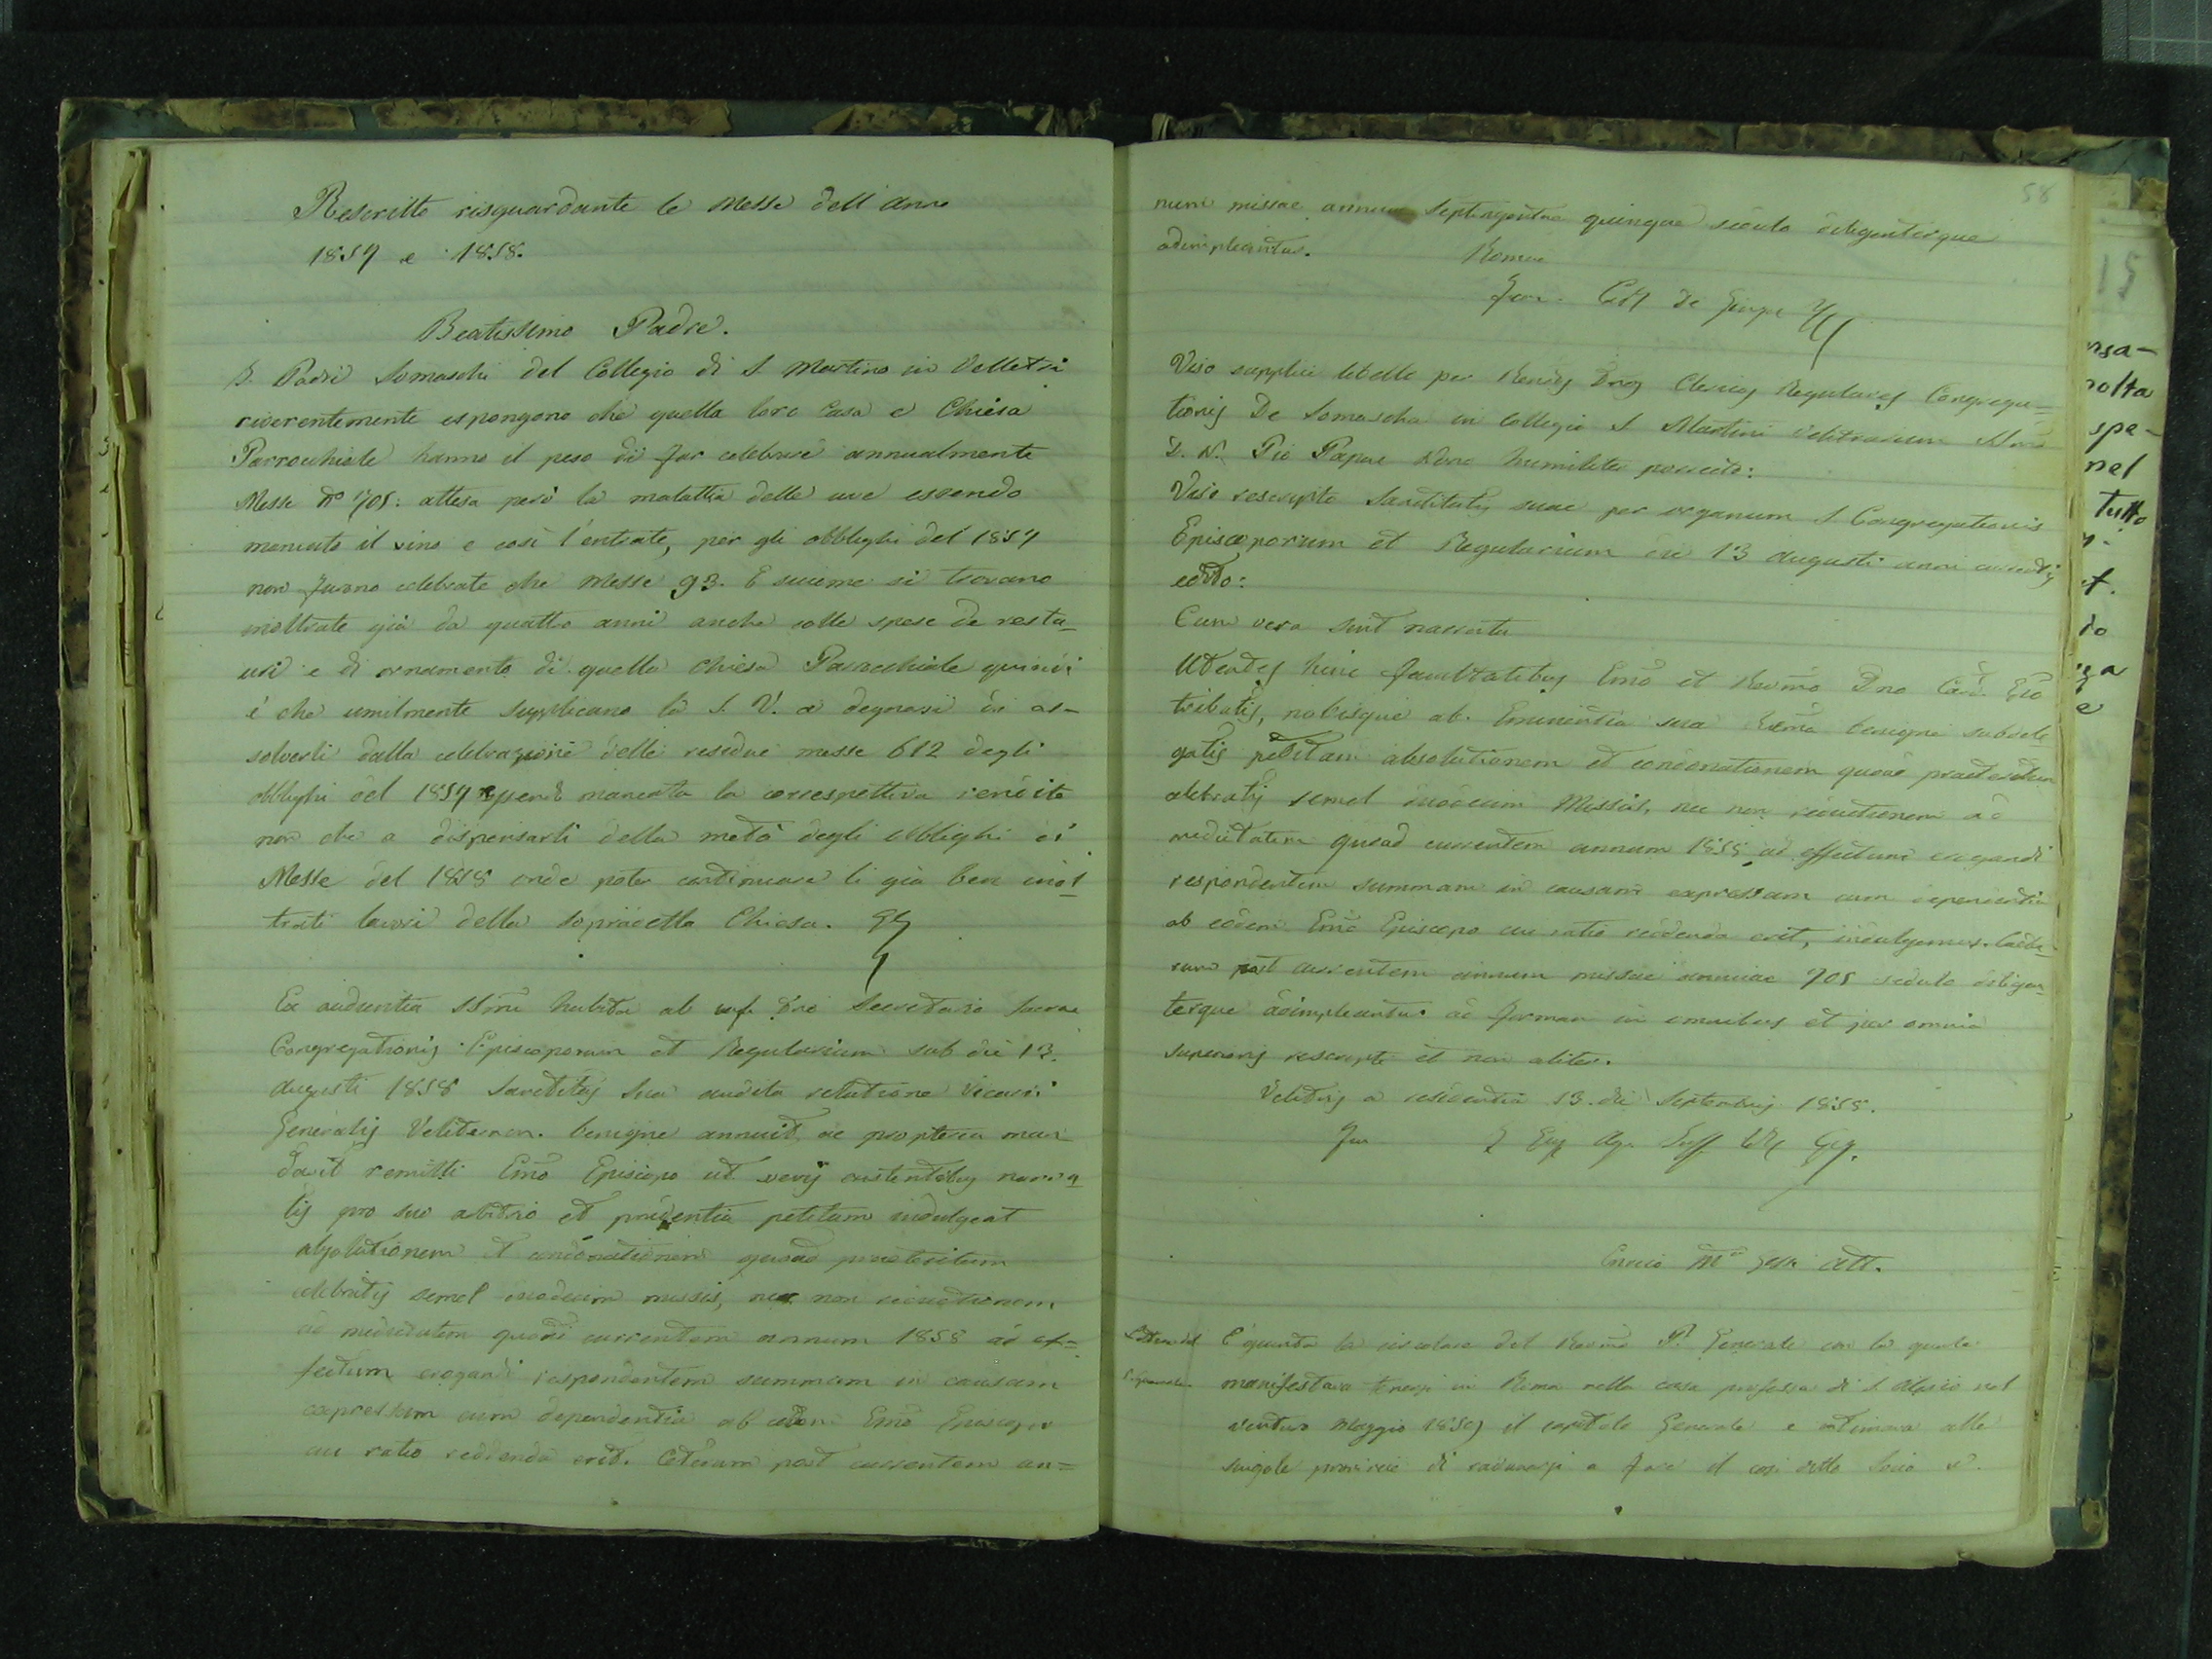 Rescritto risguardante le Messe dell'anno
1857 e 1858.
Beatissimo Padre.
I Padri Somaschi del Collegio di S. Martino in Velletri
riverentemente espongono che quella loro Casa e Chiesa
Parrocchiale hanno il peso di far celebrare annualmente
Messe N° 705: attesa però la malattia delle uve essendo
mancato il vino e così l'entrate, per gli obblighi del 1857
non furono celebrate che Messe 93. E siccome si trovano
inoltrate già da quattro anni anche colle spese di resta-
uri e di ornamento di quella Chiesa Parocchiale quindi
è che umilmente supplicano la S. V. a degnarsi di as-
solverli dalla celebrazione delle residue messe 612 degli
obblighi del 1857 mancata la correspettiva rendita
non che a dispensarli della metà degli obblighi di
Messe del 1858 onde poter continuare li già ben inol-
trati lavori della sopradetta Chiesa.
Ex audientia SSmi habita ab Dno Secretario Sacrae
Congregationis Episcoporum et Regularium sub die 13.
Augusti 1858 Sanctitas Sua audita relatione Vicarii
Generalis Veliternen. benigne annuit, ac propterea man-
davit remitti Emo Episcopo ut veris existentibus narra-
tis pro suo arbitrio et prudentia petitam indulgeat
absolutionem et condonationem quoad praeteritum
celebratis semel duodecim missis, nec non reductionem
ad medietatem quoad currentem annum 1858 ad ef=
fectum erogandi respondentem summam in causam
expressam cum dependentia ab eodem Emo Episcopo
cui ratio reddenda erit. Ceterum post currentem an=
58
num missae annuae septingentae quinque sedulo diligenterque
adimpleantur. Romae
Viso supplici libello per Rendos Dnos Clericos Regulares Congrega=
tionis De Somascha in Collegio S. Martini Velitrarum SSmo
D. N. Pio Papae Nono humiliter porrecto:
Viso rescripto Sanctitatis suae per organum S. Congregationis
Episcoporum et Regularium die 13 Augusti anni currentis
edito:
Cum vera sint narrata
Utentes hinc facultatibus Emo et Revmo Dno Card. Epo
tributis, nobisque ab Eminentia sua Rema benigne subdele
gatis petitam absolutionem et condonationem quoad praeteritum
celebratis semel duodecim Missis, nec non reductionem ad
medietatem quoad currentem annum 1858 ad effectum erogandi
respondentem summam in causam expressam cum dependentia
ab eodem Emo Episcopo cui ratio reddenda erit, indulgemus. Caete-
rum post currentem annum missae annuae 705 sedulo diligen-
terque adimpleantur ad formam in omnibus et per omnia
superioris rescripti et non aliter.
Velitris a residentia 13. die Septembris 1858.
att.
Lettera del
P. Generale
È giunta la circolare del Revmo P. Generale con la quale
manifestava tenersi in Roma nella casa professa di S. Alessio nel
venturo Maggio 1859 il capitolo Generale e intimava alle
singole provincie di radunarsi a fare il così detto Socio